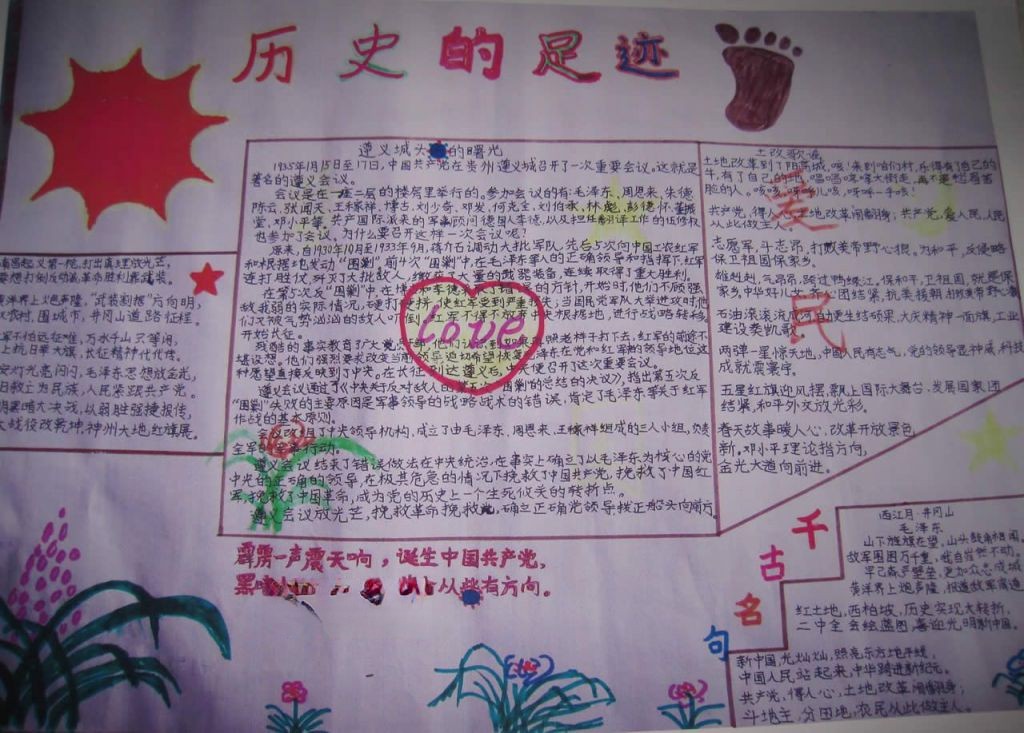 历史的足迹
遵义城头的曙光
1935年1月15日至17日，中国共产党在贵州遵义城召开了一次重要会议。这就是
著名的遵义会议。
会议是在一座二层的楼房里举行的。参加会议的有：毛泽东、周恩来、朱德
陈云、张闻天、王稼祥、博古、刘少奇、邓发、何克全、刘伯承、林彪、彭德怀、董振
堂、邓小平等。共产国际派来的军事顾问德国人李德，以及担任翻译工作的伍修权
也参加了会议。为什么要召开这样一次会议呢？
原来，自1930年10月至1933年9月，蒋介石调动大批军队，先后5次向中国工农红军
和根据地发动“围剿”。前4次“围剿”中，在毛泽东等人的正确领导和指挥下，红军
连打胜仗，歼灭了大批敌人，缴获了大量的武器装备，连续取得了重大胜利。
在第5次反“围剿”中
的方针，开始时，他们不顾强
敌我弱的实际情况，硬打硬拼，使红军受到严重损失；当国民党军队大举进攻时，他
们又被气势汹汹的敌人吓倒，红军不得不放弃中央根据地，进行战略转移
开始长征。
残酷的事实教育了大
照老样子打下去，红军的前途不
堪设想。他们强烈要求改变当前领导，迫切希望恢复毛泽东在党和红军的领导地位。这
种愿望直接反映到了中央。在长征到达遵义后，中央便召开了这次重要会议。
遵义会议通过了《中央关于反对敌人的第五次“围剿”的总结的决议》，指出第五次反
“围剿”失败的主要原因是军事领导的战略战术的错误，肯定了毛泽东等关于红军
作战的基本原则。
会议改组了中央领导机构，成立了由毛泽东、周恩来、王稼祥组成的三人小组，负责
全军的军事行动。
遵义会议结束了错误做法在中央统治，在事实上确立了以毛泽东为核心的党
中央的正确的领导，在极其危急的情况下挽救了中国共产党，挽救了中国红
军，挽救了中国革命，成为党的历史上一个生死攸关的转折点。
遵义会议放光芒，挽救革命挽救党，确立正确党领导拨正船头向前方。
Love
爱
民
土改歌谣
共产党，得人心，土地改革闹翻身；共产党，爱人民，人民
从此做主人。
志愿军，斗志昂，打败美帝野心狼。为和平，反侵略
保卫祖国保家乡。
雄赳赳，气昂昂，跨过鸭绿江。保和平，卫祖国，就是保
家乡。中华好儿女，齐心团结紧，抗美援朝，打败美帝野心狼
石油滚滚流成河，自力更生结硕果，大庆精神一面旗，工业
建设奏凯歌。
两弹一星惊天地，中国人民有志气，党的领导显神威，科技
成就震寰宇。
五星红旗迎风摆，飘上国际大舞台，发展国家团
结紧，和平外交放光彩。
春天故事暖人心，改革开放景色
新。邓小平理论指方向，
金光大道向前进。
南昌起义第一枪，打出真理放光芒，
要想打倒反动派，革命胜利靠武装。
黄洋界上炮声隆，“武装割据”方向明；
农村，围城市，井冈山道路征程。
军不怕远征难，万水千山只等闲，
上抗日举大旗，长征精神代代传。
安灯光亮闪闪，毛泽东思想放金光，
日救亡为民族，人民紧跟共产党。
明黑暗大决战，以弱胜强捷报传，
大战役改乾坤，神州大地红旗展。
霹雳一声震天响，诞生中国共产党，
从此有方向。
千
古
名
句
西江月·井冈山
毛泽东
山下旌旗在望，山头鼓角相闻。
敌军围困万千重，我自岿然不动。
早已森严壁垒，更加众志成城
黄洋界上炮声隆，报道敌军宵遁
红土地，西柏坡，历史实现大转折，
二中全会绘蓝图，喜迎光明新中国。
新中国，光灿灿，照亮东方地平线，
中国人民站起来，中华跨进新纪元。
共产党，得人心，土地改革闹翻身；
斗地主，分田地，农民从此做主人。